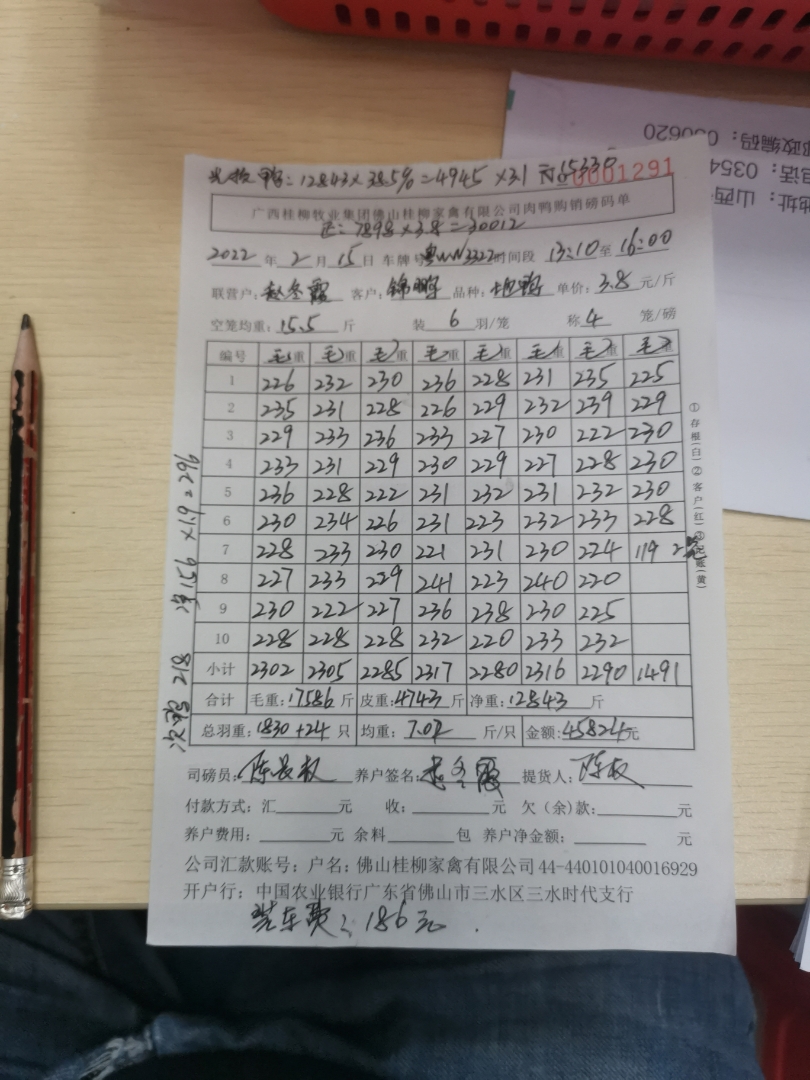 鸭：12843×38.5%=4945 ×31 15330
0001291
广西桂柳牧业集团佛山桂柳家禽有限公司肉鸭购销磅码单
正：7898×3.8=30012
2022 年 2 月 15 日 车牌号 粤 3322 时间段 13:10 至 16:00
联营户：赵冬霞 客户：锦鹏 品种： 单价：3.8 元/斤
空笼均重：15.5 斤 装 6 羽/笼 称 4 笼/磅
编号 毛重 毛重 毛重 毛重 毛重 毛重 毛重 毛重
1 226 232 230 236 228 231 235 225
2 235 231 228 226 229 232 239 229
3 229 233 236 233 227 230 222 230
4 233 231 229 230 229 227 228 230
5 236 228 222 231 232 231 232 230
6 230 234 226 231 223 232 233 228
7 228 233 230 221 231 230 224 119 2笼
8 227 233 229 241 223 240 220
9 230 222 227 236 238 230 225
10 228 228 228 232 220 233 232
小计 2302 2305 2285 2317 2280 2316 2290 1491
合计 毛重：17586 斤 皮重：4743 斤 净重：12843 斤
总羽重：1830+24 只 均重：7.02 斤/只 金额：45824元
司磅员： 养户签名： 冬霞 提货人：
付款方式：汇 元 收： 元 欠（余）款： 元
养户费用： 元 余料 包 养户净金额： 元
公司汇款账号：户名：佛山桂柳家禽有限公司 44-440101040016929
开户行：中国农业银行广东省佛山市三水区三水时代支行
装车费：186元
次鸭 218 净156×1.9=296
①存根(白)②客户(红)③记账(黄)
邮政编码：030620
电话：0354
地址：山西